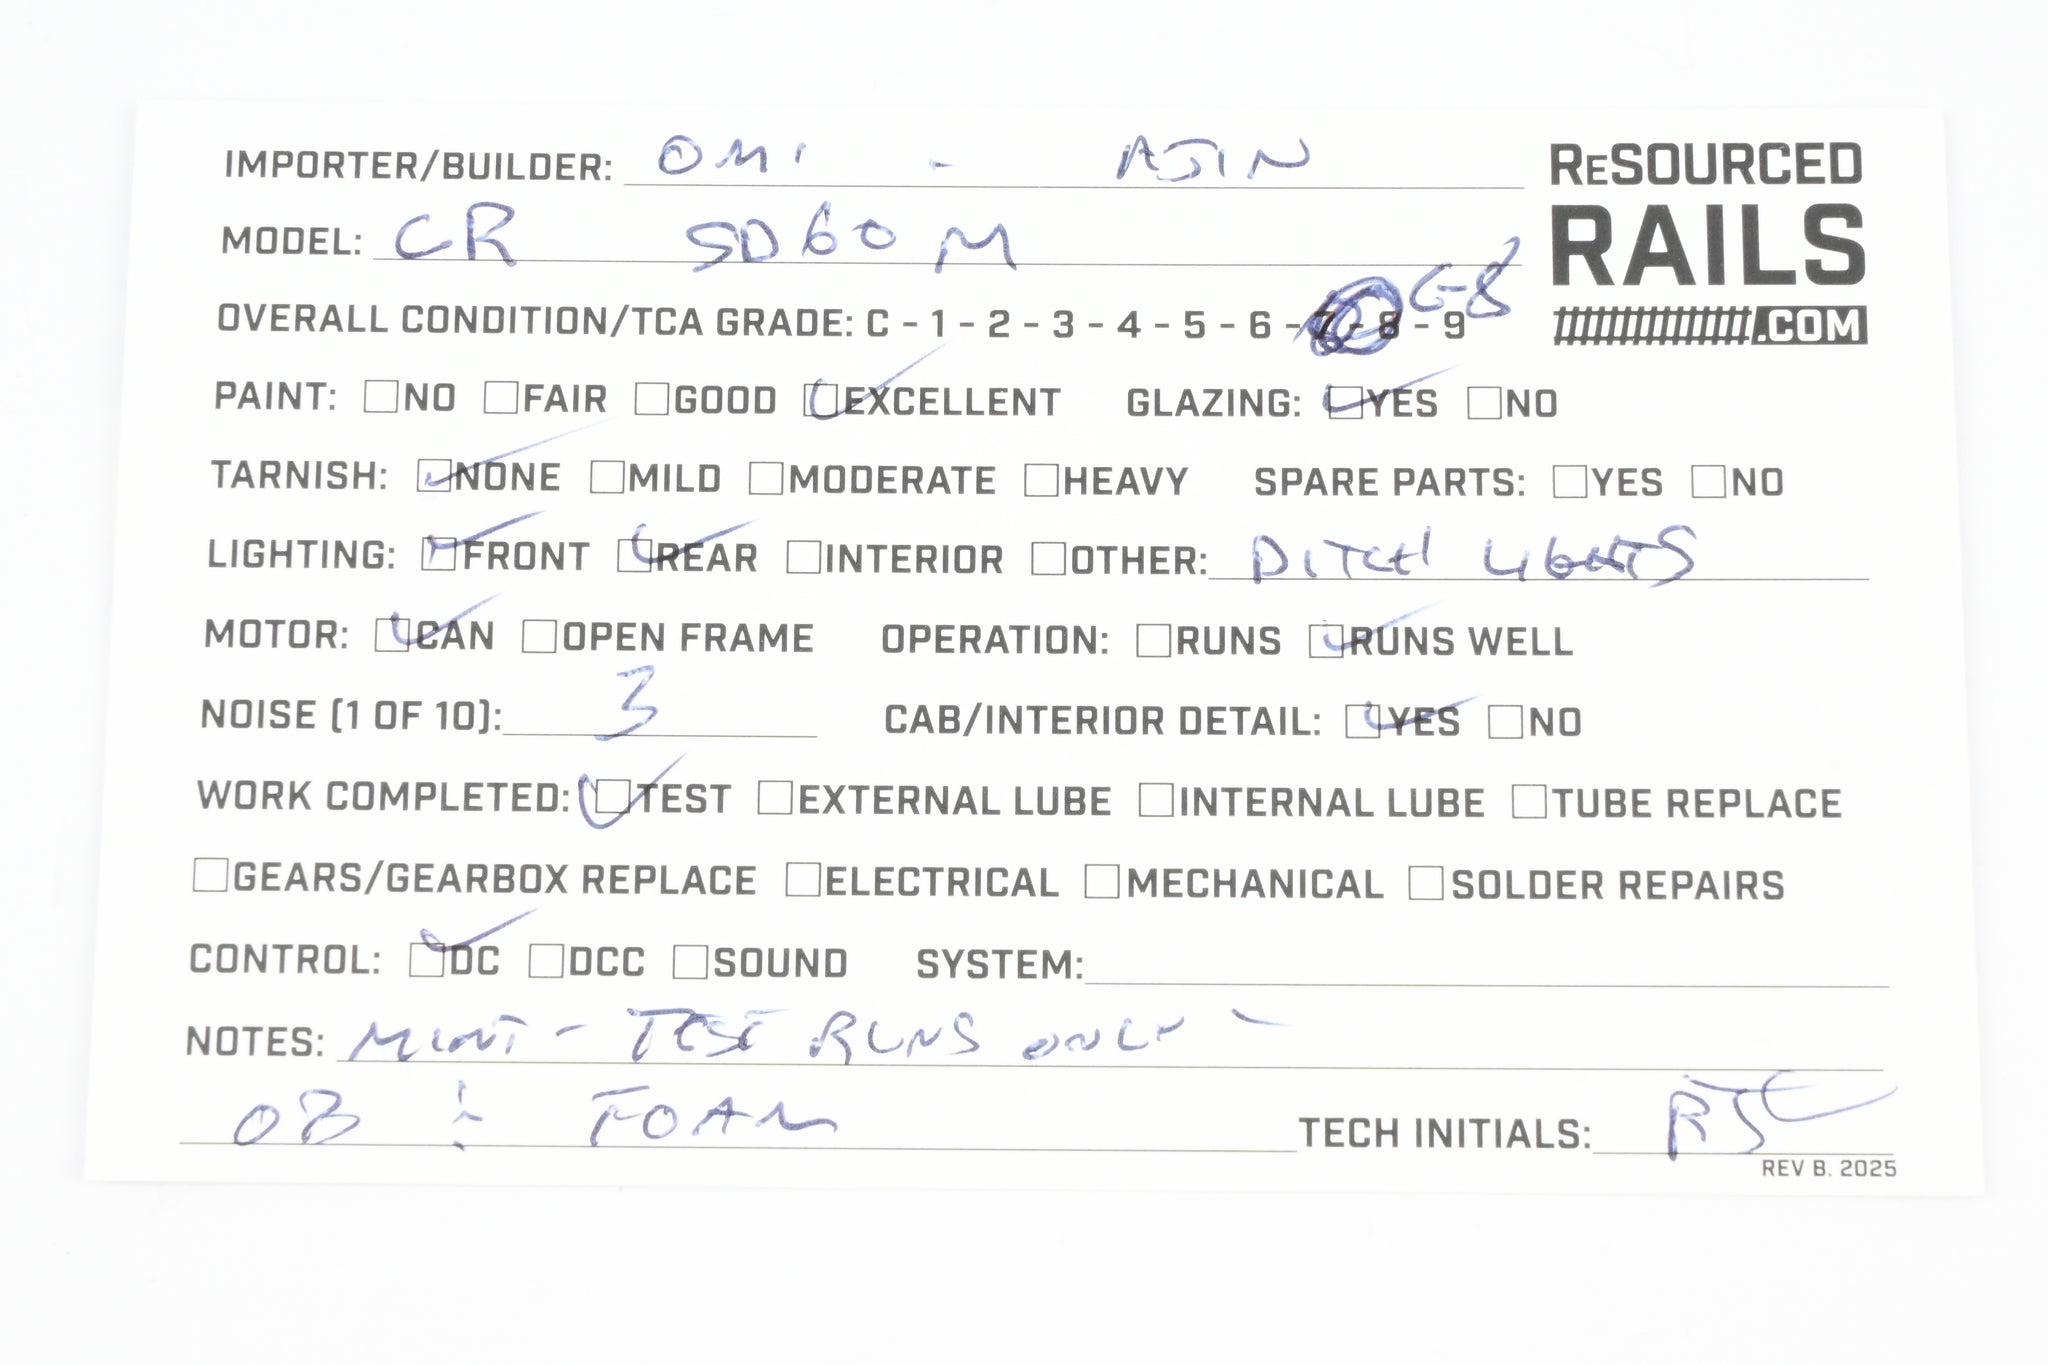 IMPORTER/BUILDER: OMI - AJIN
ReSOURCED
RAILS
.COM
MODEL: CR SD60M
OVERALL CONDITION/TCA GRADE: C - 1 - 2 - 3 - 4 - 5 - 6 - 7 - 8 - 9 C-8
PAINT: ☐NO ☐FAIR ☐GOOD ☑EXCELLENT GLAZING: ☑YES ☐NO
TARNISH: ☑NONE ☐MILD ☐MODERATE ☐HEAVY SPARE PARTS: ☐YES ☐NO
LIGHTING: ☑FRONT ☑REAR ☐INTERIOR ☐OTHER: DITCH LIGHTS
MOTOR: ☑CAN ☐OPEN FRAME OPERATION: ☐RUNS ☑RUNS WELL
NOISE (1 OF 10): 3 CAB/INTERIOR DETAIL: ☑YES ☐NO
WORK COMPLETED: ☑TEST ☐EXTERNAL LUBE ☐INTERNAL LUBE ☐TUBE REPLACE
☐GEARS/GEARBOX REPLACE ☐ELECTRICAL ☐MECHANICAL ☐SOLDER REPAIRS
CONTROL: ☑DC ☐DCC ☐SOUND SYSTEM:
NOTES: MINT - TEST RUNS ONLY -
OB & FOAM TECH INITIALS: RJC
REV B. 2025